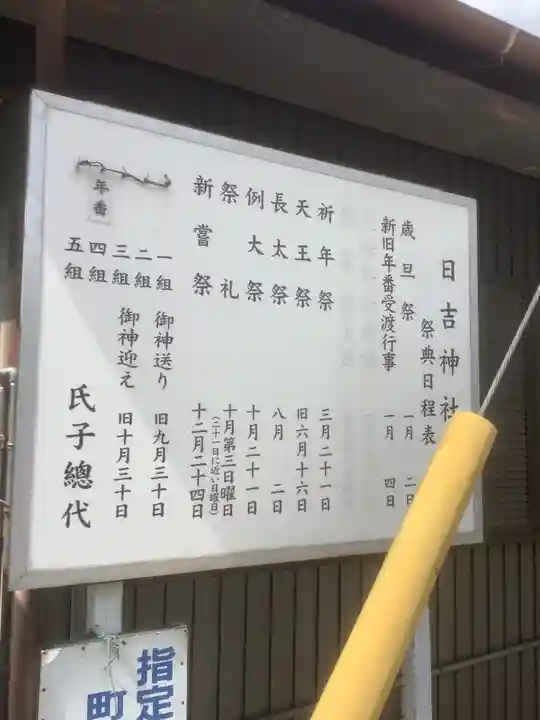 日吉神社
祭典日程表
歳旦祭 一月 二日
新旧年番受渡行事 一月 四日
祈年祭 三月二十一日
天王祭 旧六月十六日
長太祭 八月 二日
例大祭 十月二十一日
祭礼 十月第三日曜日
(二十一日に近い日曜日)
新嘗祭 十二月二十四日
一組 御神送り 旧九月三十日
二組
三組 御神迎え 旧十月三十日
四組
五組
年番
氏子總代
指定
町